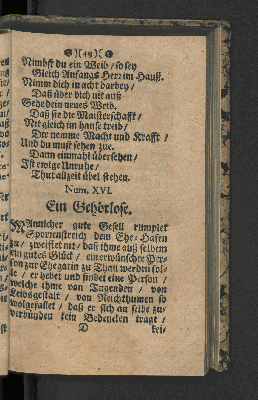 ☙ )( 49 )( ❧
Nimbst du ein Weib / so sey
Gleich Anfangs Herr im Hauß.
Nimm dich in acht darbey /
Daß über dich nit auß
Geh dein neues Weib.
Daß sie die Maisterschafft /
Nit gleich im hause treib /
Dir nemme Macht und Krafft /
Und du must sehen zue.
Dann einmahl übersehen /
Ist ewige Unruhe /
Thut allzeit übel stehen.
Num. XVI.
Ein Gehörlose.
MAnnicher gute Gesell rumplet
Sporrenstreich dem Ehe-Hafen
zu / zweiflet nit / daß ihme auß selbem
ein gutes Glück / ein erwünschte Per-
son zur Ehegatin zu Thail werden sol-
te / er hebet und findet eine Person /
welche ihme von Tugenden / von
Leibsgestalt / von Reichthumen so
wolgefallet / daß er sich an selbe zu-
verbünden kein Bedencken tragt /
D kei-